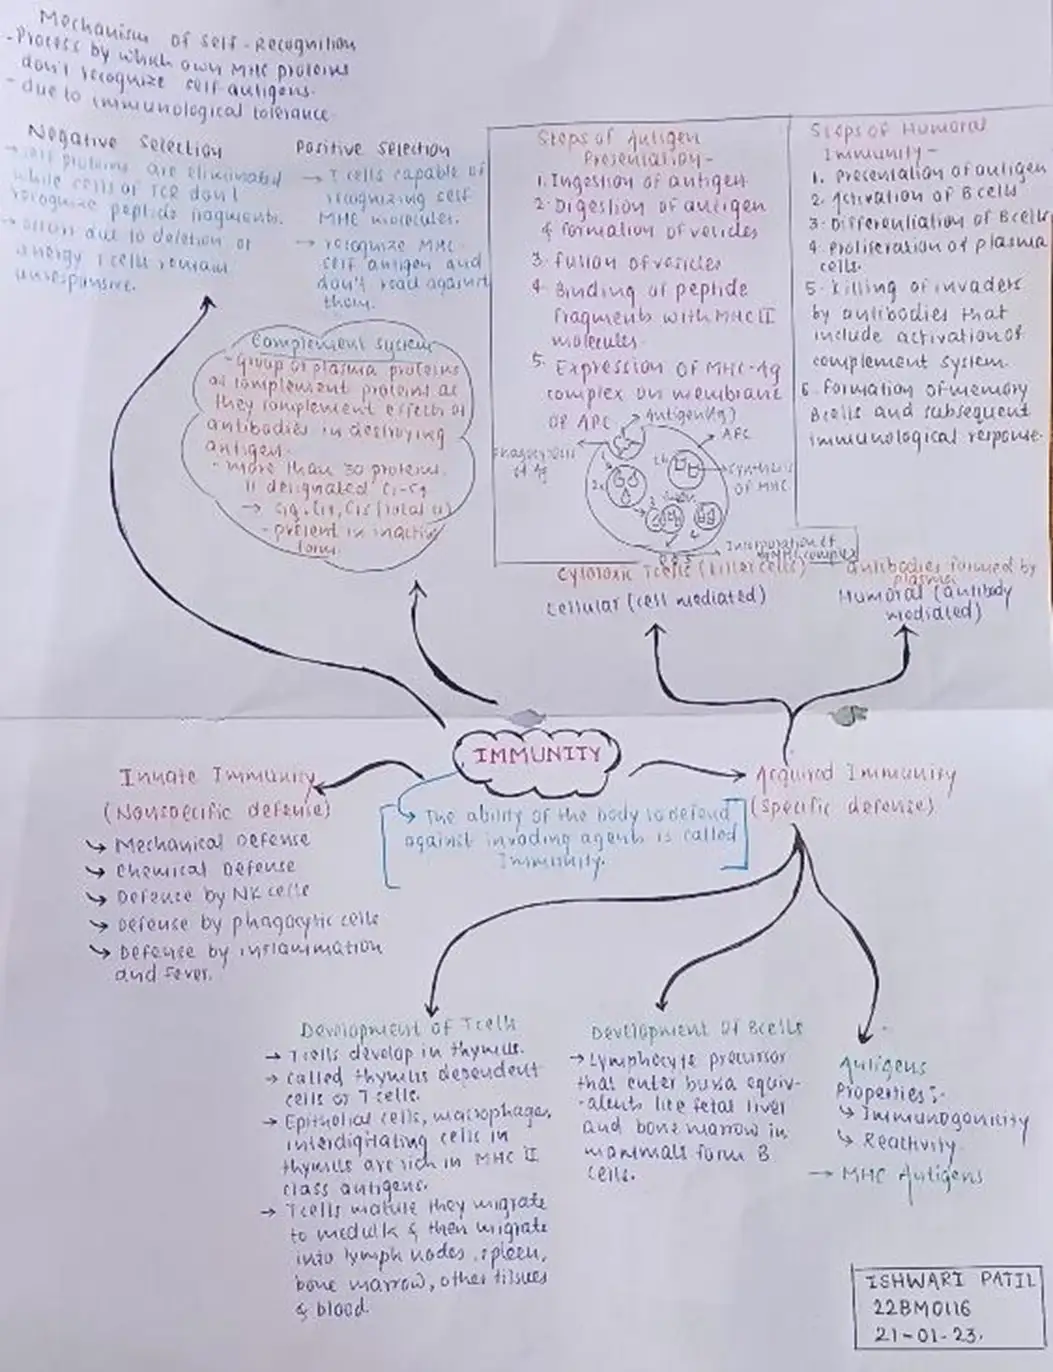 Mechanism of Self-Recognition
- Process by which own MHC proteins
don't recognize self-antigens.
- due to immunological tolerance.
Negative Selection
→ self proteins are eliminated
while cells of TCR don't
recognize peptide fragments.
→ occurs due to deletion or
anergy T cells remain
unresponsive.
Positive Selection
→ T cells capable of
recognizing self
MHC molecules.
→ recognize MHC
self antigen and
don't react against
them.
Complement System
- Group of plasma proteins
as complement proteins as
they complement effects of
antibodies in destroying
antigen.
- more than 30 proteins.
11 designated C1-C9
→ C1q, C1r, C1s (total 11)
- present in inactive
form
Steps of Antigen
Presentation-
1. Ingestion of antigen
2. Digestion of antigen
& formation of vesicles
3. fusion of vesicles
4. Binding of peptide
fragments with MHC II
molecules.
5. Expression of MHC-Ag
complex on membrane
of APC
Antigen (Ag)
APC
Phagocytosis
of Ag
Synthesis
of MHC
Incorporation of
Steps of Humoral
Immunity-
1. Presentation of antigen
2. Activation of B cells
3. Differentiation of B cells
4. Proliferation of plasma
cells.
5. Killing of invaders
by antibodies that
include activation of
complement system.
6. Formation of memory
B cells and subsequent
immunological response.
Cytotoxic T cells (killer cells)
Cellular (cell mediated)
Antibodies formed by
plasma
Humoral (antibody
mediated)
IMMUNITY
→ The ability of the body to defend
against invading agents is called
Immunity.
Innate Immunity
(Nonspecific defense)
↳ Mechanical Defense
↳ Chemical Defense
↳ Defense by NK cells
↳ Defense by phagocytic cells
↳ Defense by inflammation
and fever.
Acquired Immunity
(Specific defense)
Development of T cells
→ T cells develop in thymus.
→ called thymus dependent
cells or T cells.
→ Epithelial cells, macrophages,
interdigitating cells in
thymus are rich in MHC II
class antigens.
→ T cells mature they migrate
to medulla & then migrate
into lymph nodes, spleen,
bone marrow, other tissues
& blood.
Development of B cells
→ Lymphocyte precursor
that enter bursa equiv-
-alents like fetal liver
and bone marrow in
mammals form B
cells.
Antigens
Properties:-
↳ Immunogonicity
↳ Reactivity.
→ MHC Antigens
ISHWARI PATIL
22BM0116
21-01-23.